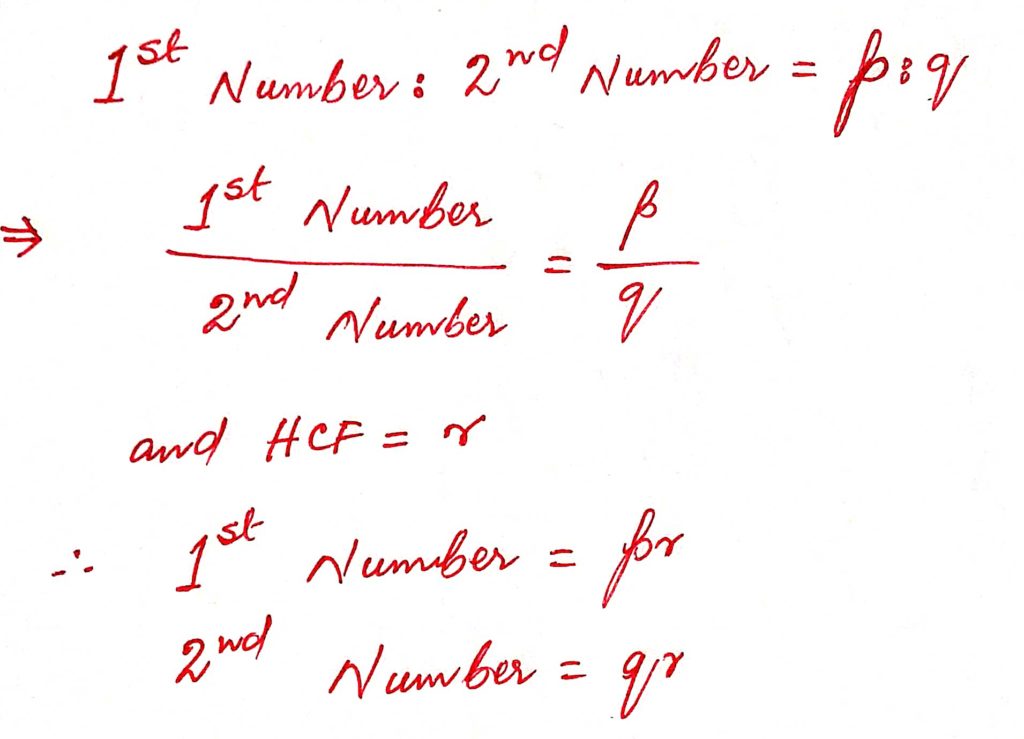 1st Number : 2nd Number = p : q
⇒ 1st Number / 2nd Number = p / q
and HCF = r
∴ 1st Number = pr
2nd Number = qr